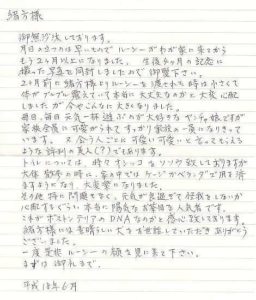 緒方様
御無沙汰しております。
月日のたつのは早いものでルーシーがわが家に来てから
もう2ヶ月以上になりました。生後4ヶ月の記念に
撮った写真を同封しましたので御覧下さい。
2ヶ月前に緒方様よりルーシーを渡された時は小さくて
体がブルブル震えていて本当に大丈夫なのかと大変心配
しましたが今やこんなに大きくなりました。
毎日、毎日元気一杯遊ぶのが大好きなヤンチャ娘ですが
家族全員に可愛がられてすっかり家族の一員になりきって
います。 会う人ごとに可愛い可愛いと言ってもらえる
ような評判の美人(?)でもあります。
トイレについては、時々オシッコをソソウ致しておりますが
大体散歩の時に、家の中ではケージかペットシーツで用を済
ますようになり、大変楽になりました。
その他特に問題もなく、元気が良過ぎて怪我をしないか
心配するぐらい本当に陽気なお茶目な人気者です。
これがボストンテリアのDNAなのかと感心致しております。
緒方様には素晴らしい犬をお世話していただきありがとう
ございました。
一度是非ルーシーの顔を見に来て下さい。
まずは御礼まで。
平成18年6月